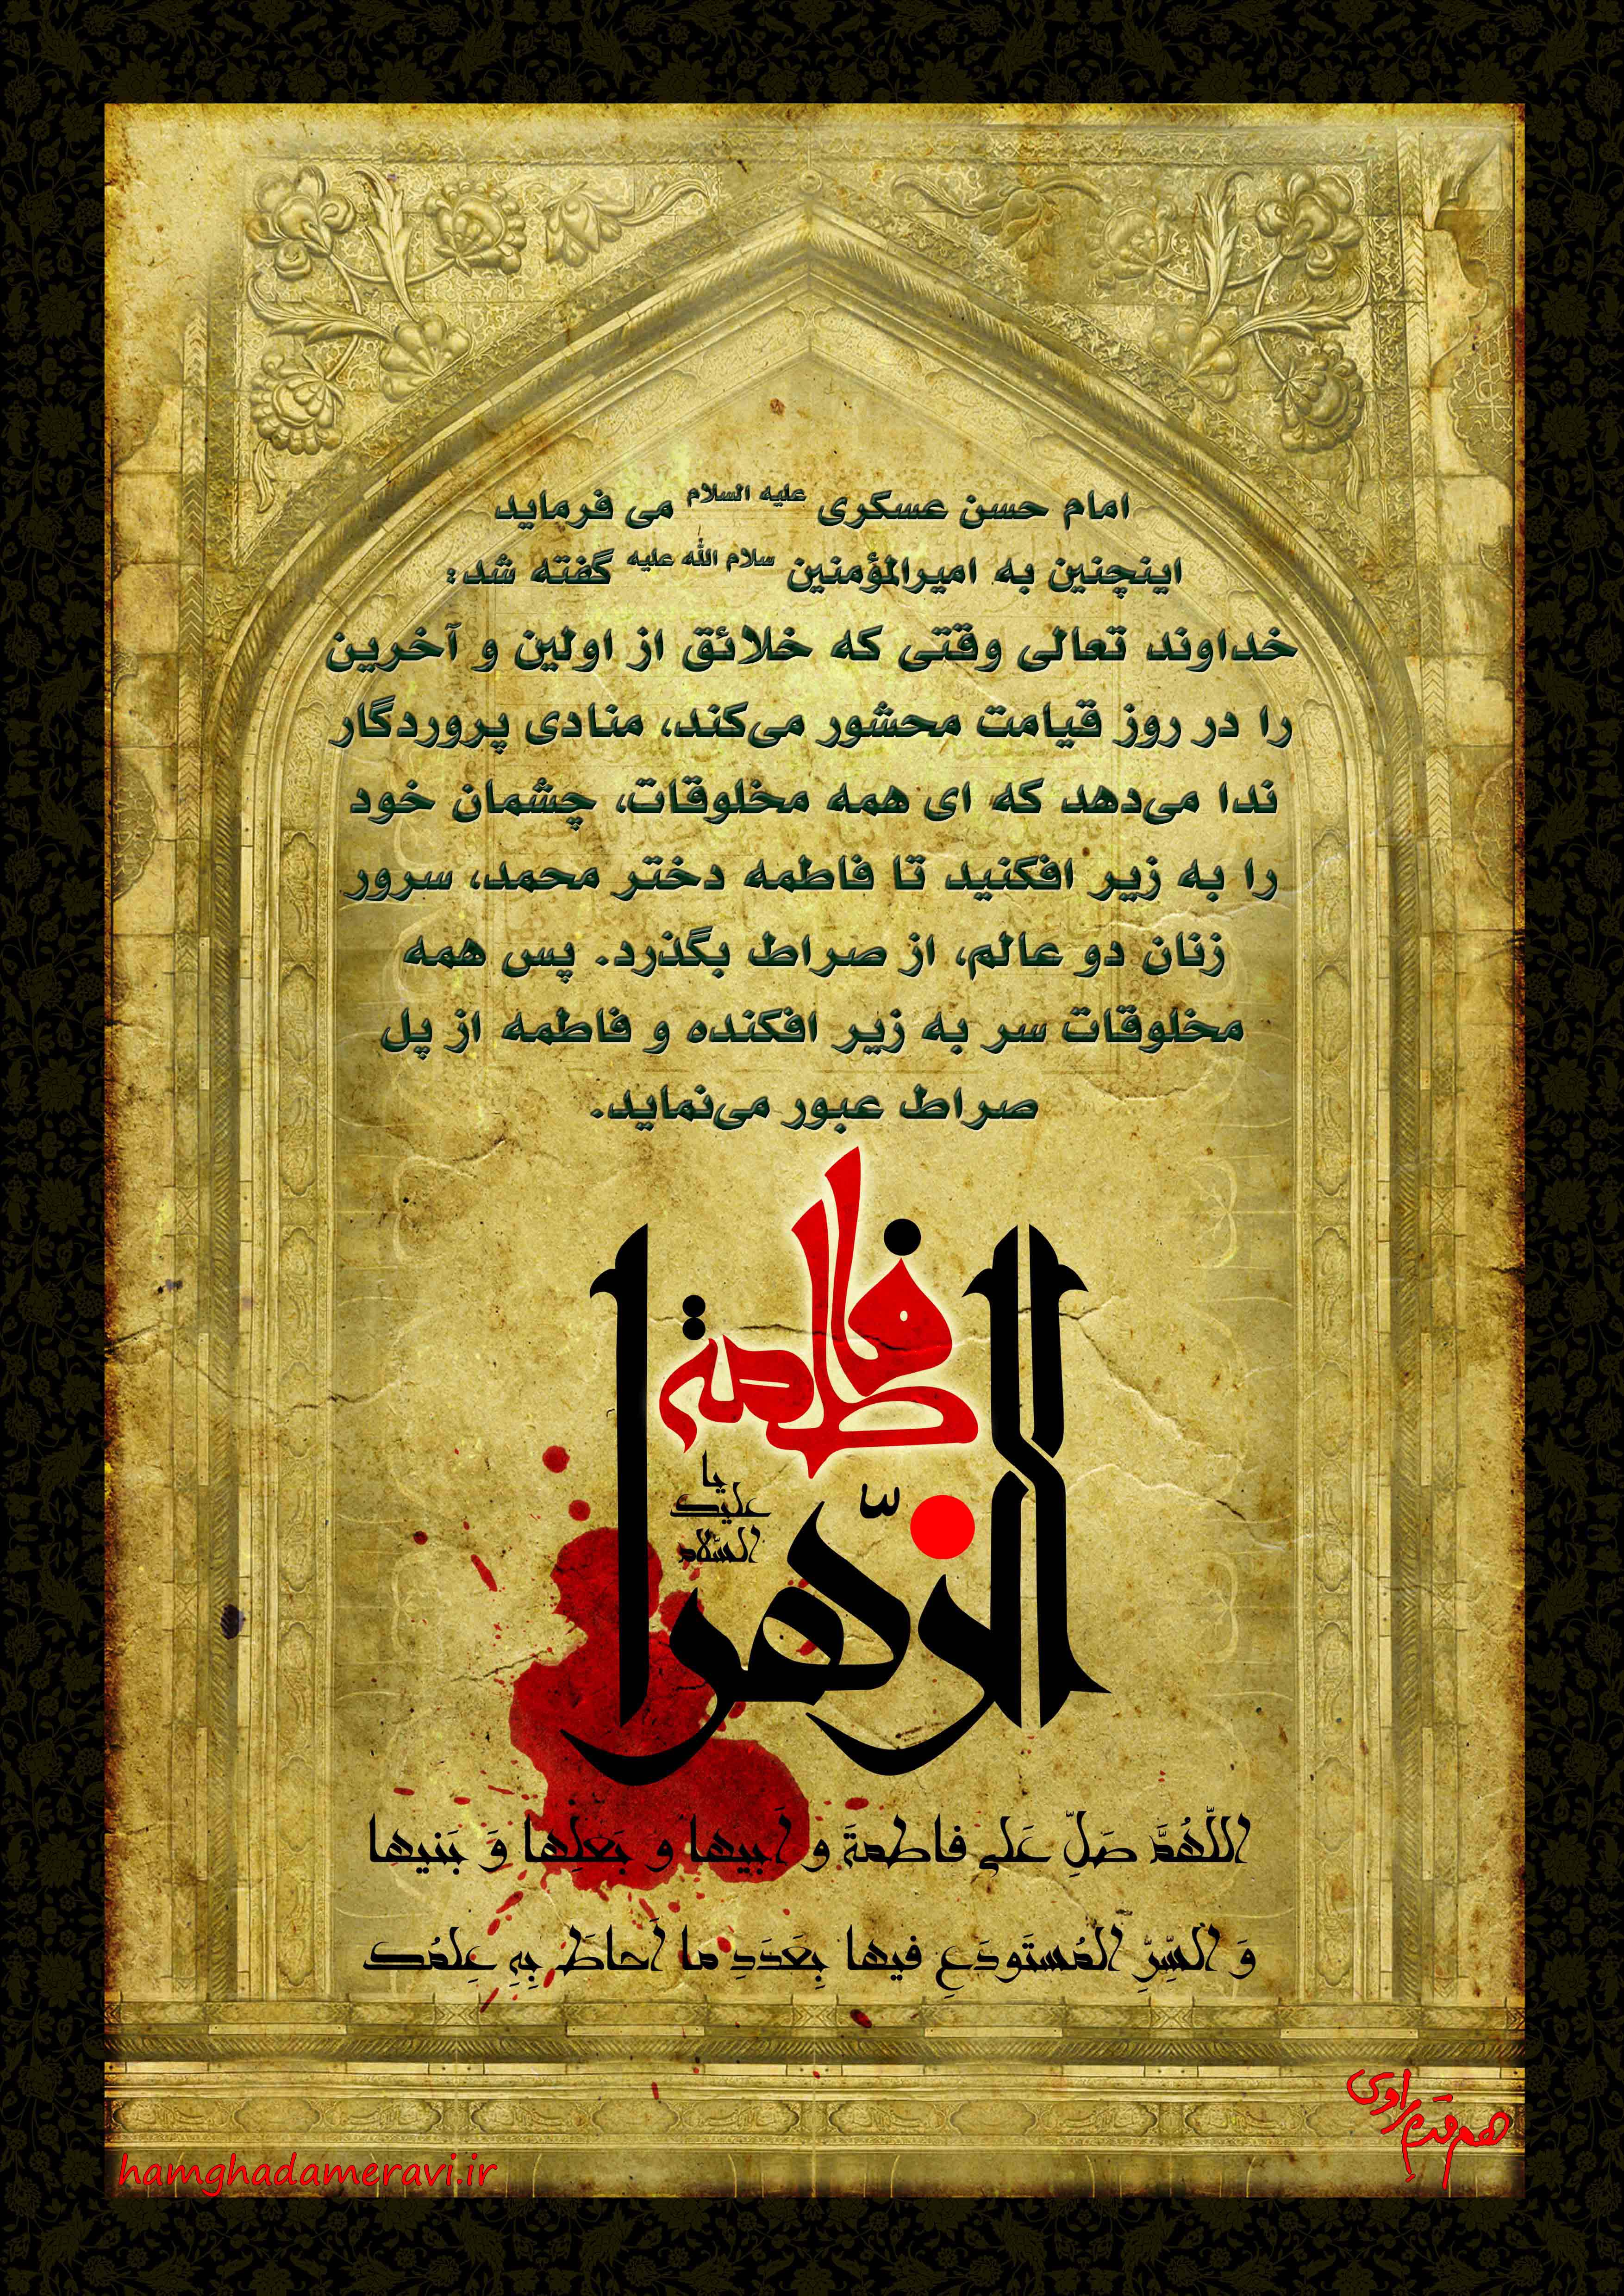 امام حسن عسکری علیه السلام می فرماید
اینچنین به امیرالمؤمنین سلام الله علیه گفته شد:
خداوند تعالی وقتی که خلائق از اولین و آخرین
را در روز قیامت محشور می‌کند، منادی پروردگار
ندا می‌دهد که ای همه مخلوقات، چشمان خود
را به زیر افکنید تا فاطمه دختر محمد، سرور
زنان دو عالم، از صراط بگذرد. پس همه
مخلوقات سر به زیر افکنده و فاطمه از پل
صراط عبور می‌نماید.
فاطمة
الزّهرا
یا
علیک
السلام
اللّهُمَّ صَلِّ عَلی فاطمةَ و اَبیها و بَعْلِها وَ بَنیها
وَ السِّرِّ المُستَودَعِ فیها بِعَدَدِ ما اَحاطَ بِهِ عِلمُک
هم قدم راوی
hamghadameravi.ir